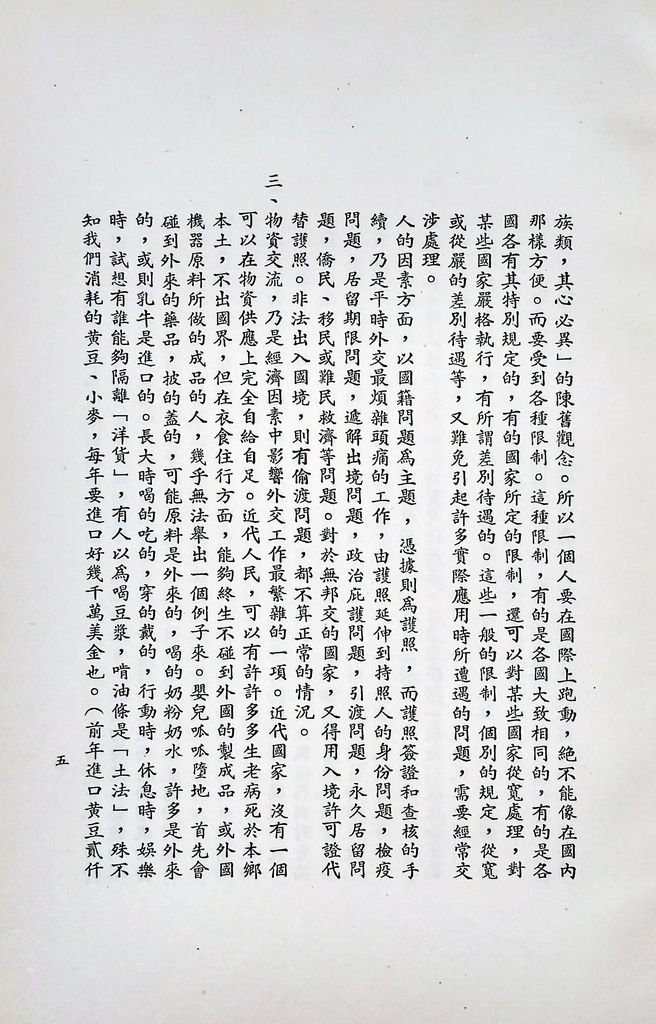 族類，其心必異」的陳舊觀念。所以一個人要在國際上跑動，絕不能像在國內
那樣方便。而要受到各種限制。這種限制，有的是各國大致相同的，有的是各
國各有其特別規定的，有的國家所定的限制，還可以對某些國家從寬處理，對
某些國家嚴格執行，有所謂差別待遇的。這些一般的限制，個別的規定，從寬
或從嚴的差別待遇等，又難免引起許多實際應用時所遭遇的問題，需要經常交
涉處理。
人的因素方面，以國籍問題為主題，憑據則為護照，而護照簽證和查核的手
續，乃是平時外交最煩雜頭痛的工作，由護照延伸到持照人的身份問題，檢疫
問題，居留期限問題，遞解出境問題，政治庇護問題，引渡問題，永久居留問
題，僑民、移民或難民救濟等問題。對於無邦交的國家，又得用入境許可證代
替護照。非法出入國境，則有偷渡問題，都不算正常的情況。
三、物資交流，乃是經濟因素中影響外交工作最繁雜的一項。近代國家，沒有一個
可以在物資供應上完全自給自足。近代人民，可以有許許多多生老病死於本鄉
本土，不出國界，但在衣食住行方面，能夠終生不碰到外國的製成品，或外國
機器原料所做的成品的人，幾乎無法舉出一個例子來。嬰兒呱呱墮地，首先會
碰到外來的藥品，披的蓋的，可能原料是外來的，喝的奶粉奶水，許多是外來
的，或則乳牛是進口的。長大時喝的吃的，穿的戴的，行動時，休息時，娛樂
時，試想有誰能夠隔離「洋貨」，有人以為喝豆漿，啃油條是「土法」，殊不
知我們消耗的黃豆、小麥，每年要進口好幾千萬美金也。（前年進口黃豆貳仟
五